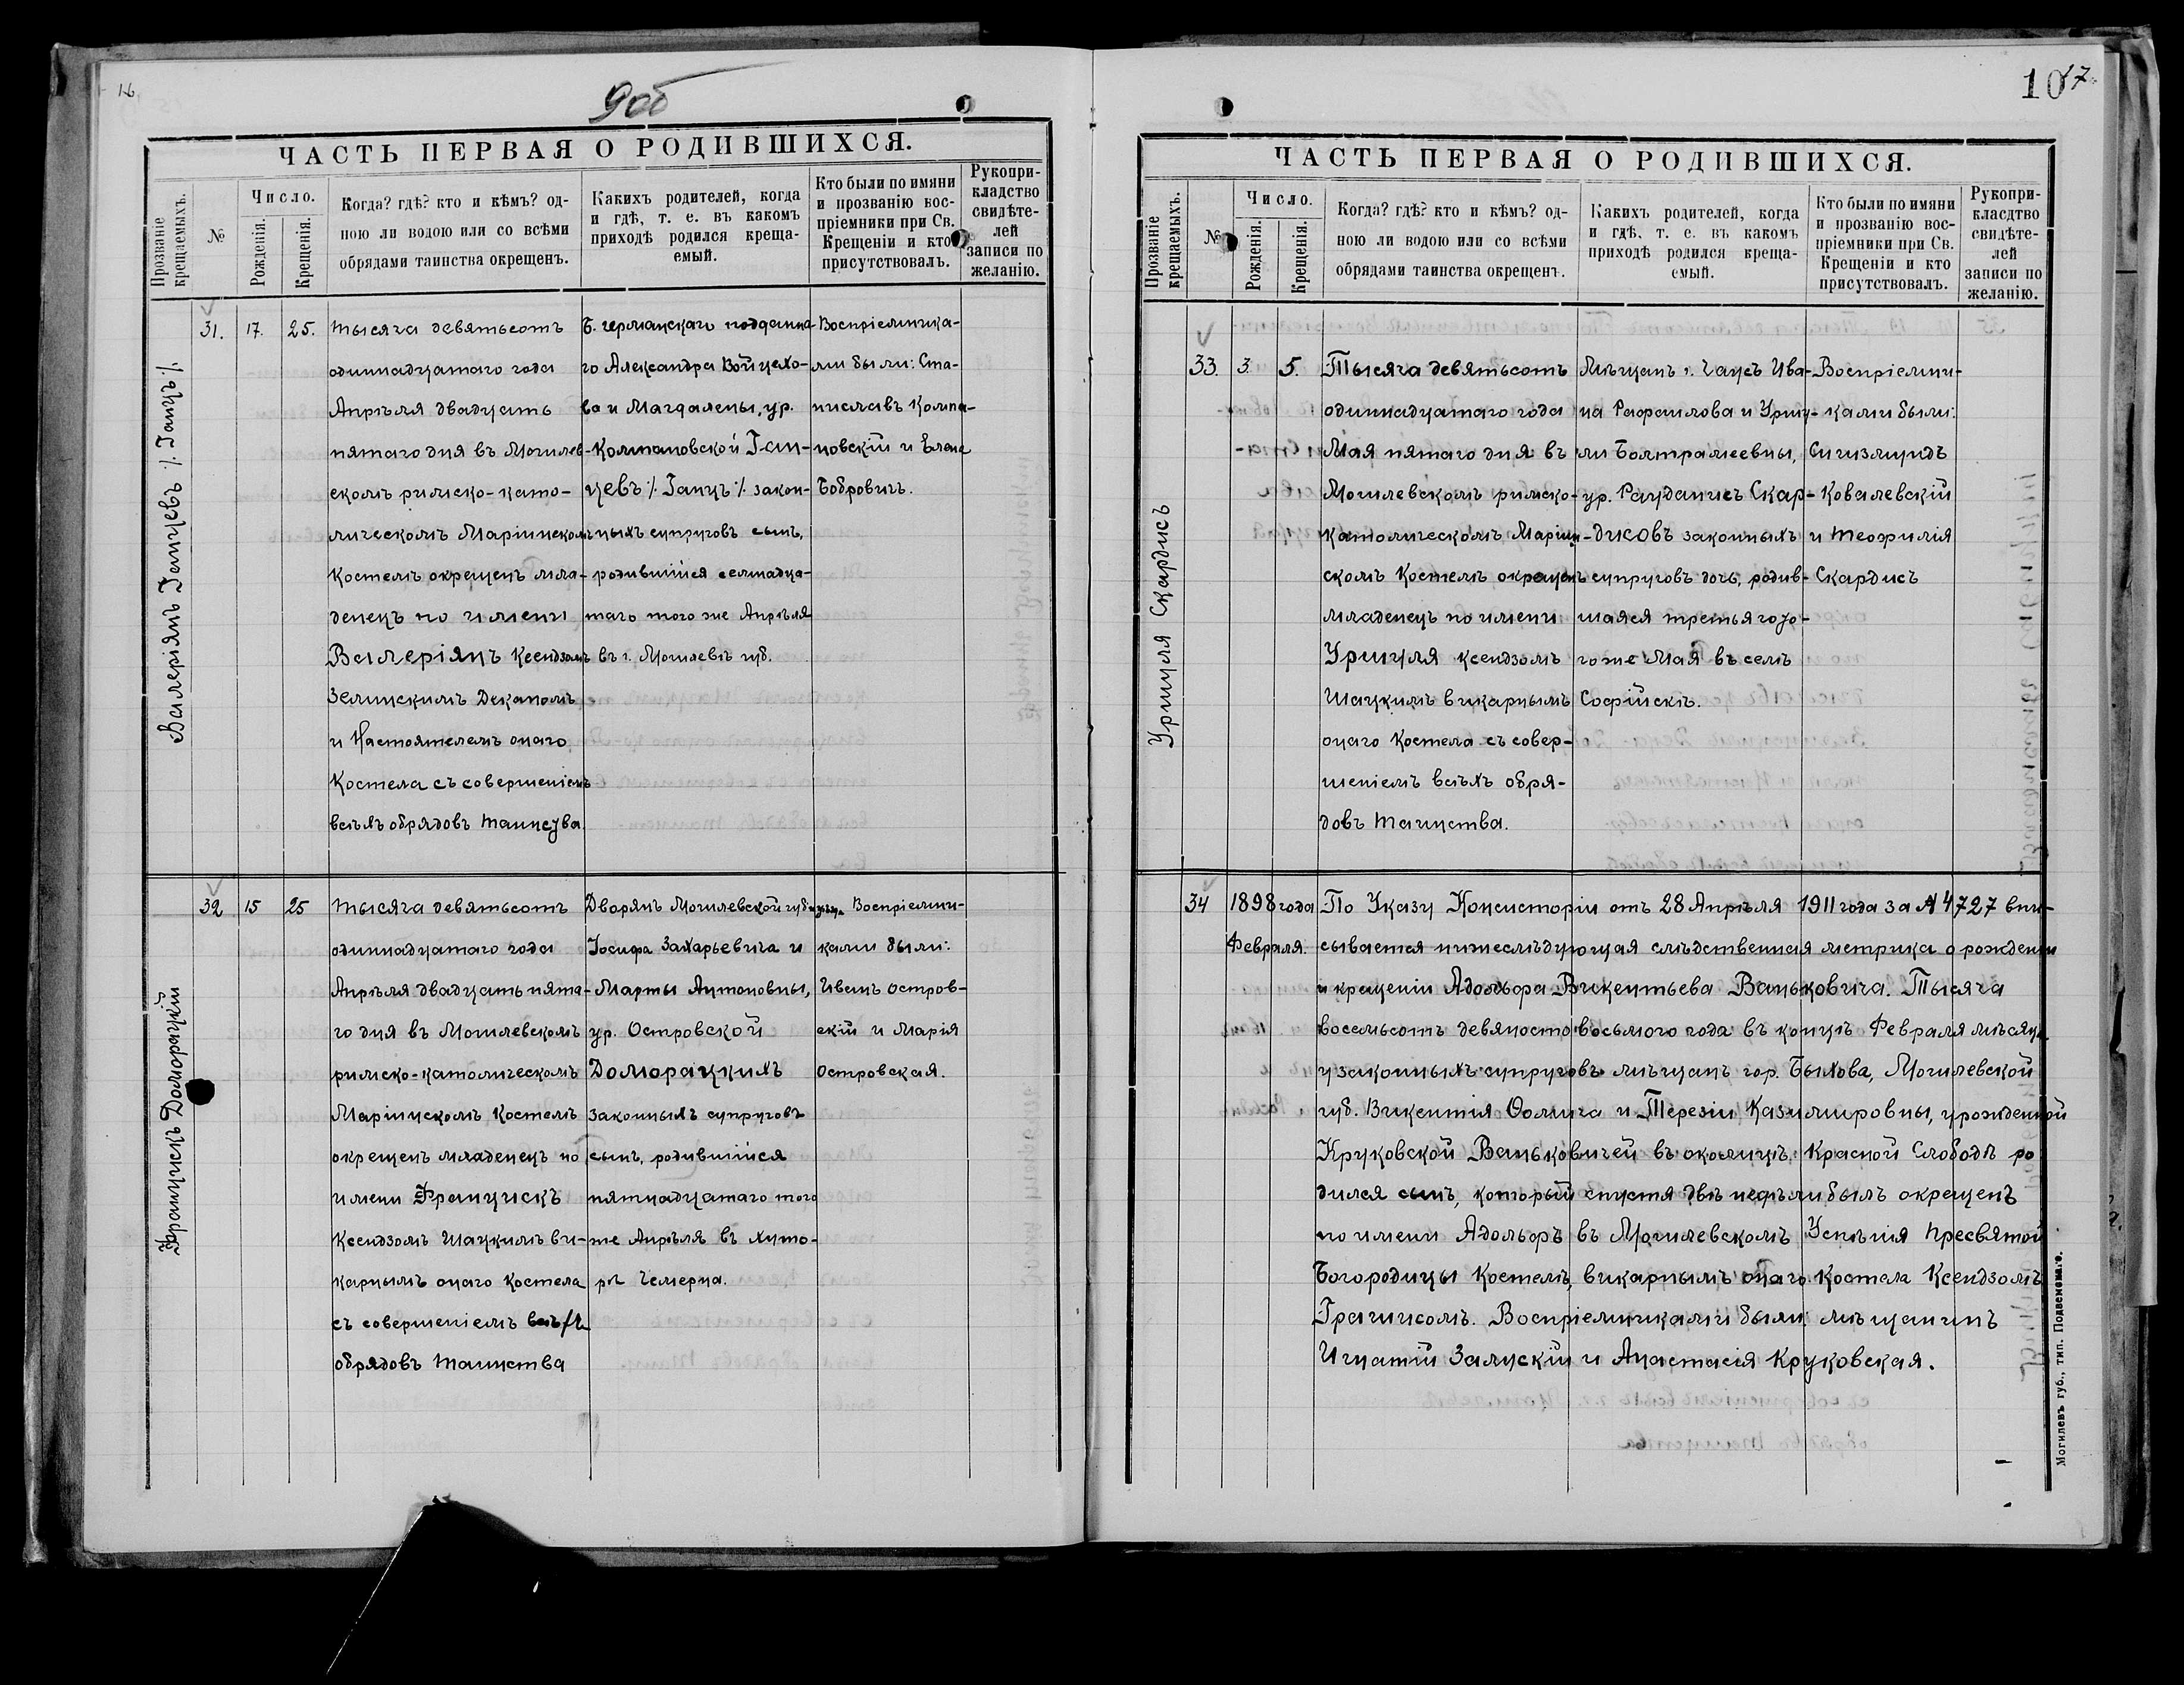 16
9об
ЧАСТЬ ПЕРВАЯ О РОДИВШИХСЯ.
Прозваніе крещаемыхъ.
№
Число.
Рожденія.
Крещенія.
Когда? гдѣ? кто и кѣмъ? од-
ною ли водою или со всѣми
обрядами таинства окрещенъ.
Какихъ родителей, когда
и гдѣ, т. е. въ какомъ
приходѣ родился креща-
емый.
Кто были по имяни
и прозванію вос-
пріемники при Св.
Крещеніи и кто
присутствовалъ.
Рукопри-
кладство
свидѣте-
лей
записи по
желанію.
Валеріянъ Ганцевъ /. Ганцъ /.
31.
17.
25.
Тысяча девятьсотъ
одиннадцатаго года
Апрѣля двадцать
пятаго дня въ Могилев-
скомъ римско-като-
лическомъ Маріинскомъ
Костелѣ окрещенъ мла-
денецъ по имени
Валеріянъ Ксендзомъ
Зелинскимъ Деканомъ
и Настоятелемъ онаго
Костела съ совершеніемъ
всѣхъ обрядовъ Таинства
Б. германскаго подданна-
го Александра Войцехо-
ва и Магдалены, ур.
Колпановской Ган-
цевъ /. Ганцъ /. закон-
ныхъ супруговъ сынъ,
родившійся семнадца-
таго того же Апрѣля
въ г. Могилевѣ губ.
Воспріемника-
ми были: Ста-
ниславъ Колпа-
новскій и Елена
Бобровичъ.
Францискъ Доморацкій
32
15
25
Тысяча девятьсотъ
одиннадцатаго года
Апрѣля двадцать пята-
го дня въ Могилевскомъ
римско-католическомъ
Маріинскомъ Костелѣ
окрещенъ младенецъ по
имени Францискъ
Ксендзомъ Шацкимъ ви-
карнымъ онаго Костела
съ совершеніемъ всѣхъ
обрядовъ Таинства
Дворянъ Могилевской губ.
Іосифа Захарьевича и
Марты Антоновны,
ур. Островской
Доморацкихъ
законныхъ супруговъ
сынъ, родившійся
пятнадцатаго того
же Апрѣля въ хуто-
рѣ Чемерна.
Воспріемни-
ками были:
Иванъ Остров-
скій и Марія
Островская.
10
17
ЧАСТЬ ПЕРВАЯ О РОДИВШИХСЯ.
Прозваніе крещаемыхъ.
№
Число.
Рожденія.
Крещенія.
Когда? гдѣ? кто и кѣмъ? од-
ною ли водою или со всѣми
обрядами таинства окрещенъ.
Какихъ родителей, когда
и гдѣ, т. е. въ какомъ
приходѣ родился креща-
емый.
Кто были по имяни
и прозванію вос-
пріемники при Св.
Крещеніи и кто
присутствовалъ.
Рукопри-
класдтво
свидѣте-
лей
записи по
желанію.
Уршуля Скардисъ
33.
3.
5.
Тысяча девятьсотъ
одиннадцатаго года
Мая пятаго дня въ
Могилевскомъ римско-
католическомъ Маріин-
скомъ Костелѣ окрещенъ
младенецъ по имени
Уршуля ксендзомъ
Шацкимъ викарнымъ
онаго Костела съ совер-
шеніемъ всѣхъ обря-
довъ Таинства.
Мѣщанъ г. Чаусъ Ива-
на Рафаилова и Уршу-
ли Болтрамеевны,
ур. Раудансъ Скар-
дисовъ законныхъ
супруговъ дочь, родив-
шаяся третьяго то-
гоже Мая въ селѣ
Софійскѣ.
Воспріемни-
ками были:
Сигизмундъ
Ковалевскій
и Теофилія
Скардисъ
34
1898 года
Февраля.
По Указу Консисторіи отъ 28 Апрѣля 1911 года за № 4727 впи-
сывается нижеслѣдующая слѣдственная метрика о рожденіи
и крещеніи Адольфа Викентьева Ваньковича. Тысяча
восемьсотъ девяносто восьмого года въ концѣ Февраля мѣсяца
у законныхъ супруговъ мѣщанъ гор. Быхова, Могилевской
губ. Викентія Ѳомича и Терезіи Казимировны, урожденной
Круковской Ваньковичей въ околицѣ Красной Слободѣ ро
дился сынъ, который спустя двѣ недѣли былъ окрещенъ
по имени Адольфъ въ Могилевскомъ Успѣнія Пресвятой
Богородицы Костелѣ, викарнымъ онаго Костела Ксендзомъ
Воспріемниками были мѣщанинъ
Игнатій Залускій и Анастасія Круковская.
Могилевъ губ., тип. Подземскаго.